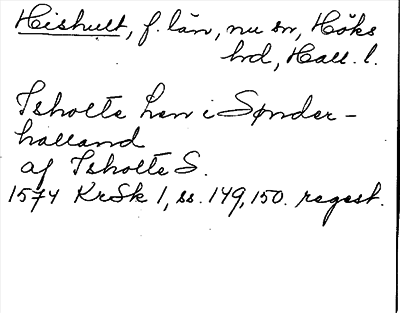 Hishult, f. län, nu sn, Höks
hd, Hall. l.
Isholte hen i Sønder-
halland
af Isholte S.
1574 KrSk 1, ss. 149, 150. regest.